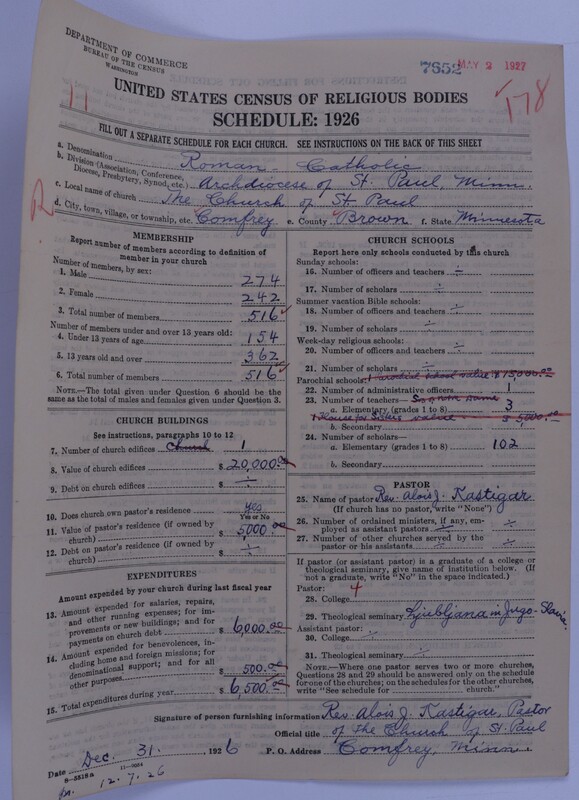 DEPARTMENT OF COMMERCE
BUREAU OF THE CENSUS
WASHINGTON
7652 MAY 2 1927
11
178
UNITED STATES CENSUS OF RELIGIOUS BODIES
SCHEDULE: 1926
FILL OUT A SEPARATE SCHEDULE FOR EACH CHURCH. SEE INSTRUCTIONS ON THE BACK OF THIS SHEET
a. Denomination Roman Catholic
b. Division (Association, Conference, Diocese, Presbytery, Synod, etc.) Archdiocese of St. Paul, Minn.
c. Local name of church The Church of St. Paul
R
d. City, town, village, or township, etc. Comfrey e. County Brown f. State Minnesota
MEMBERSHIP
Report number of members according to definition of member in your church
Number of members, by sex:
1. Male 274
2. Female 242
3. Total number of members 516
Number of members under and over 13 years old:
4. Under 13 years of age 154
5. 13 years old and over 362
6. Total number of members 516
NOTE.—The total given under Question 6 should be the
same as the total of males and females given under Question 3.
CHURCH BUILDINGS
See instructions, paragraphs 10 to 12
7. Number of church edifices Church 1
8. Value of church edifices $ 20,000.00
9. Debt on church edifices $ ÷
10. Does church own pastor's residence? yes
Yes or No
11. Value of pastor's residence (if owned by church) $ 5000.00
12. Debt on pastor's residence (if owned by church) $ ÷
EXPENDITURES
Amount expended by your church during last fiscal year
13. Amount expended for salaries, repairs,
and other running expenses; for im-
provements or new buildings; and for
payments on church debt $ 6,000.00
14. Amount expended for benevolences, in-
cluding home and foreign missions; for
denominational support; and for all
other purposes $ 500.00
15. Total expenditures during year $ 6,500.00
CHURCH SCHOOLS
Report here only schools conducted by this church
Sunday schools:
16. Number of officers and teachers ÷
17. Number of scholars ÷
Summer vacation Bible schools:
18. Number of officers and teachers ÷
19. Number of scholars ÷
Week-day religious schools:
20. Number of officers and teachers ÷
21. Number of scholars ÷
Parochial schools: 1 Parochial School value $15,000.00
22. Number of administrative officers 1
23. Number of teachers—
a. Elementary (grades 1 to 8) 3
1 House for Sisters value $ 5,000.00
b. Secondary
24. Number of scholars—
a. Elementary (grades 1 to 8) 102
b. Secondary
PASTOR
25. Name of pastor Rev. Alois J. Kastigar
(If church has no pastor, write "None")
26. Number of ordained ministers, if any, em-
ployed as assistant pastors ÷
27. Number of other churches served by the
pastor or his assistants ÷
If pastor (or assistant pastor) is a graduate of a college or
theological seminary, give name of institution below. (If
not a graduate, write "No" in the space indicated.)
Pastor: 4
28. College
29. Theological seminary Ljubljana in Jugo-Slavia.
Assistant pastor:
30. College ÷
31. Theological seminary ÷
NOTE.—Where one pastor serves two or more churches,
Questions 28 and 29 should be answered only on the schedule
for one of the churches; on the schedules for the other churches,
write "See schedule for church."
Signature of person furnishing information Rev. Alois J. Kastigar, Pastor
Official title of The Church of St. Paul
Date Dec. 31. 1926 P. O. Address Comfrey, Minn.
8-5518a 11-9024
12.7.26